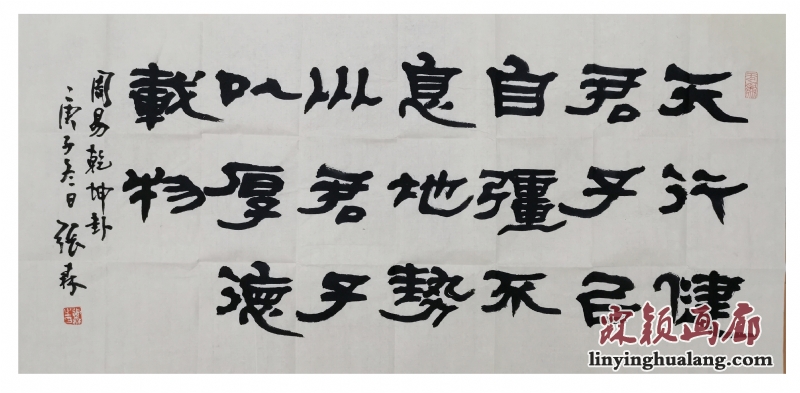 天行健
君子㠯
自彊不
息地勢
巛君子
以厚德
載物
周易乾坤卦
庚子冬日張森
霖颖画廊
linyinghualang.com